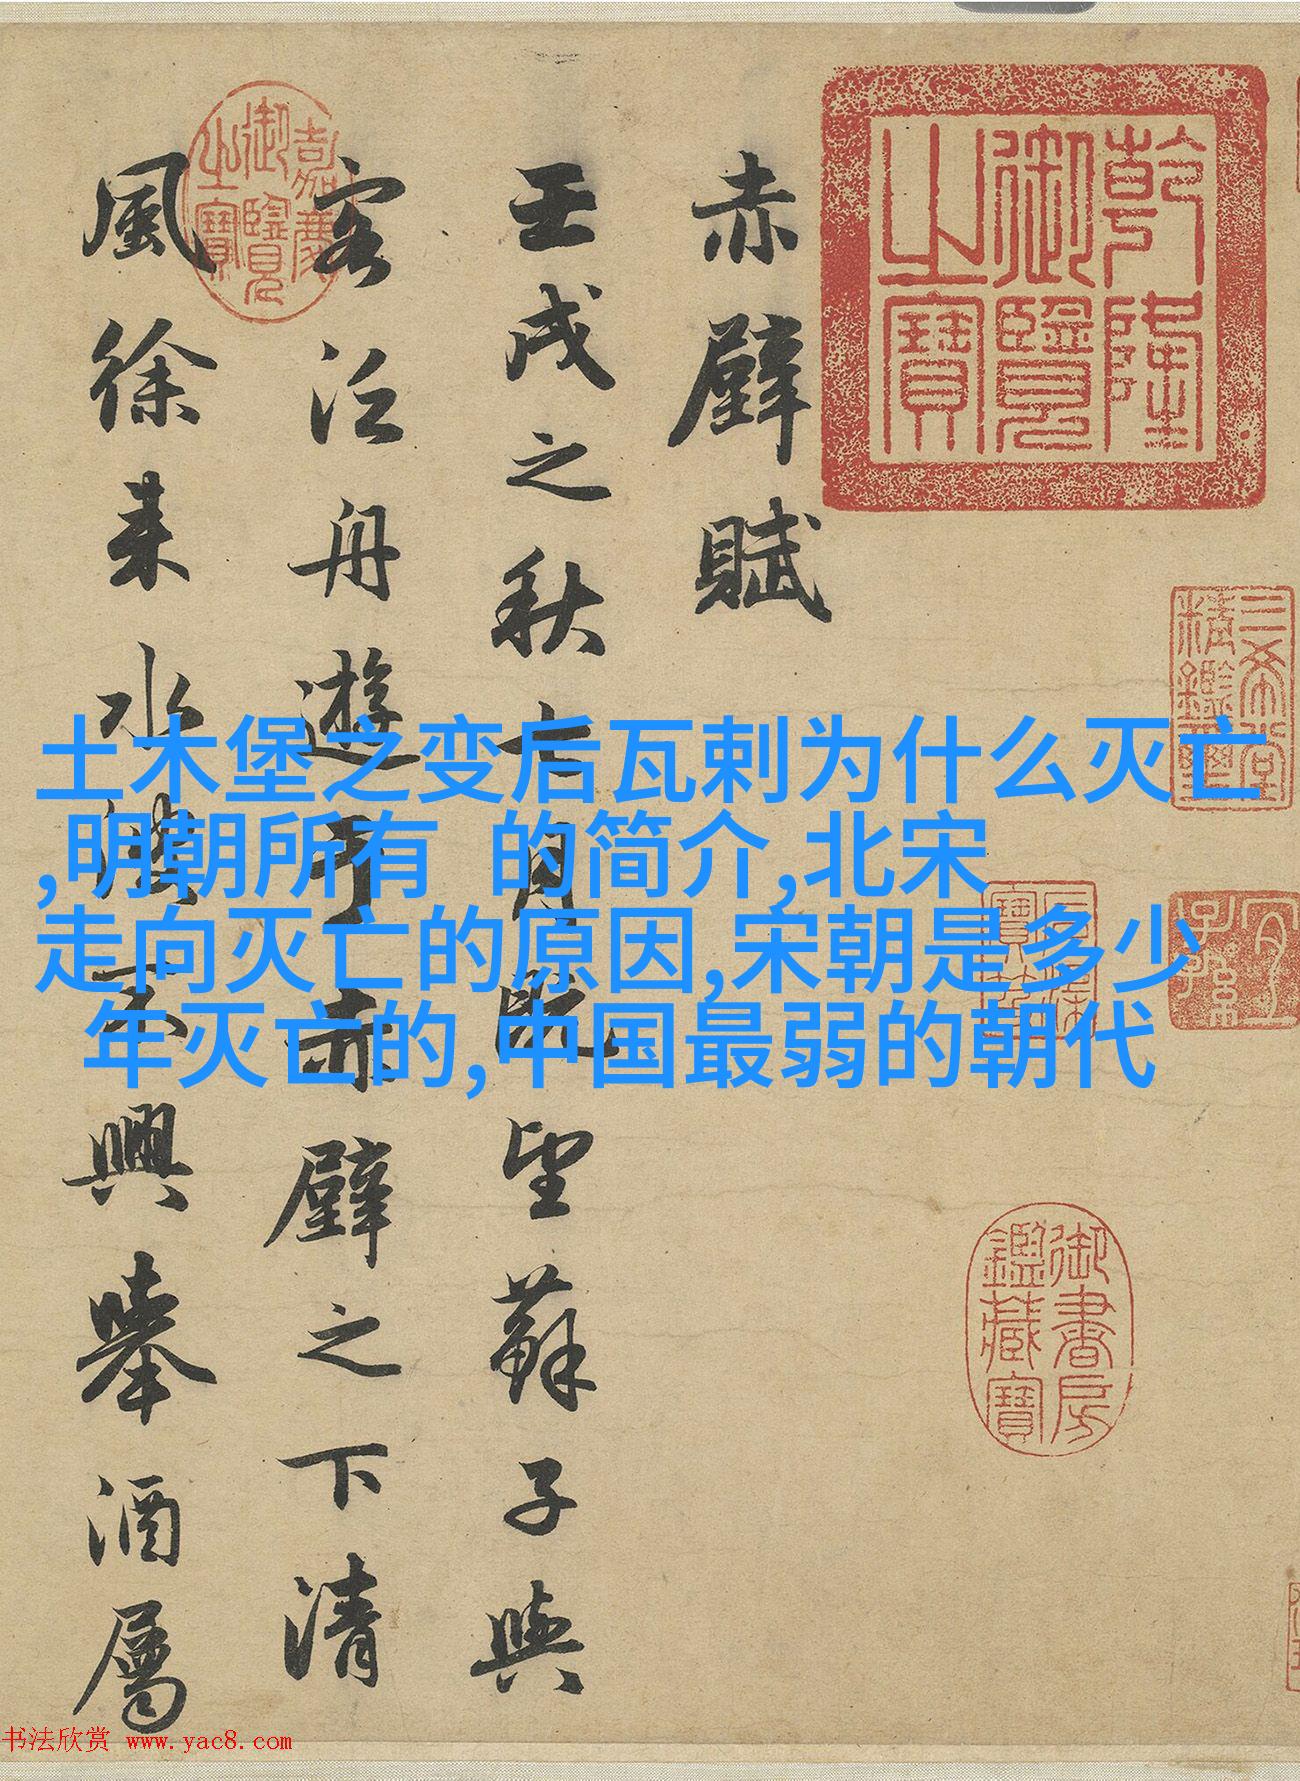 赤壁賦
壬戌之秋七月既望蘇子與
客泛舟遊于赤壁之下清
風徐来水波不興舉酒屬
乾隆御覽之寶
嘉慶御覽之寶
三希堂精鑑璽
宜子孫
御書房鑑藏寶
土木堡之变后瓦剌为什么灭亡
,明朝所有 的简介,北宋
走向灭亡的原因,宋朝是多少
年灭亡的,中国最弱的朝代
书法欣赏 www.yac8.com